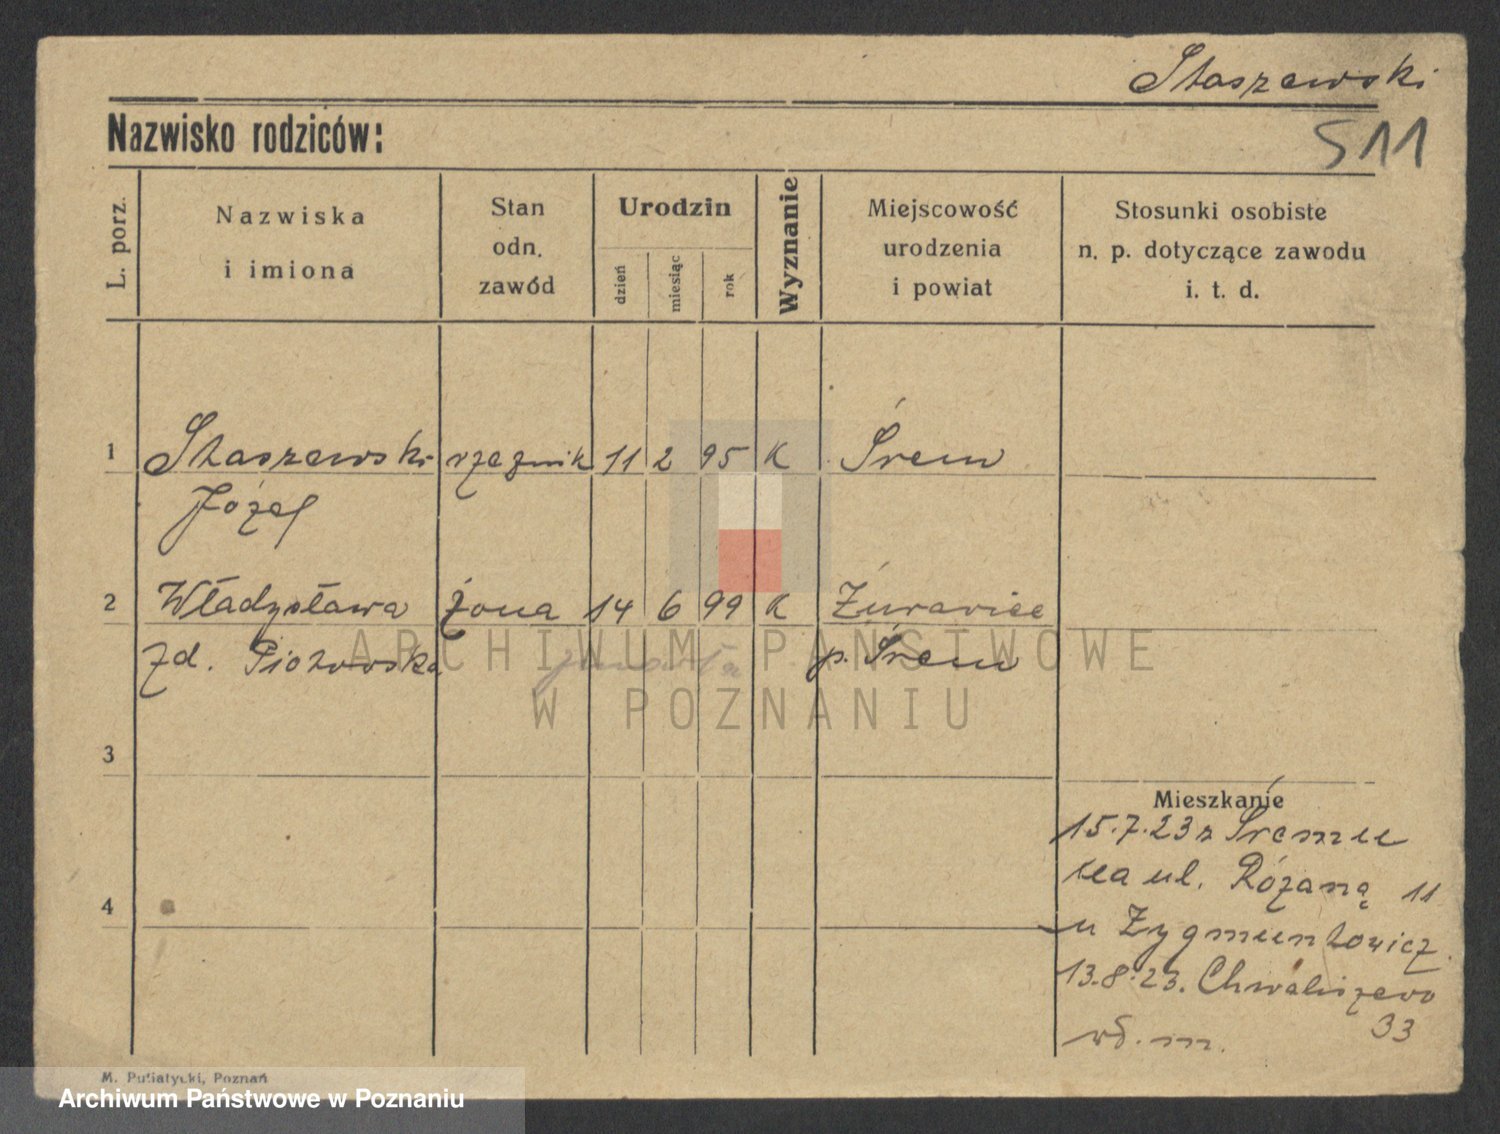 Staszewski
511
Nazwisko rodziców:
L. porz.
Nazwiska
i imiona
Stan
odn.
zawód
Urodzin
dzień
miesiąc
rok
Wyznanie
Miejscowość
urodzenia
i powiat
Stosunki osobiste
n. p. dotyczące zawodu
i. t. d.
1 Staszewski rzeźnik 11 2 95 K Śrem
Józef
2 Władysława żona 14 6 99 K
zd. Piotrowska p. Śrem
ARCHIWUM PAŃSTWOWE
W POZNANIU
3
Mieszkanie
15.7.23 z Śremu
na ul. Różaną 11
4
u Zygmuntowicz
13.8.23. Chwaliszewo
33
M. Putiatycki, Poznań
Archiwum Państwowe w Poznaniu